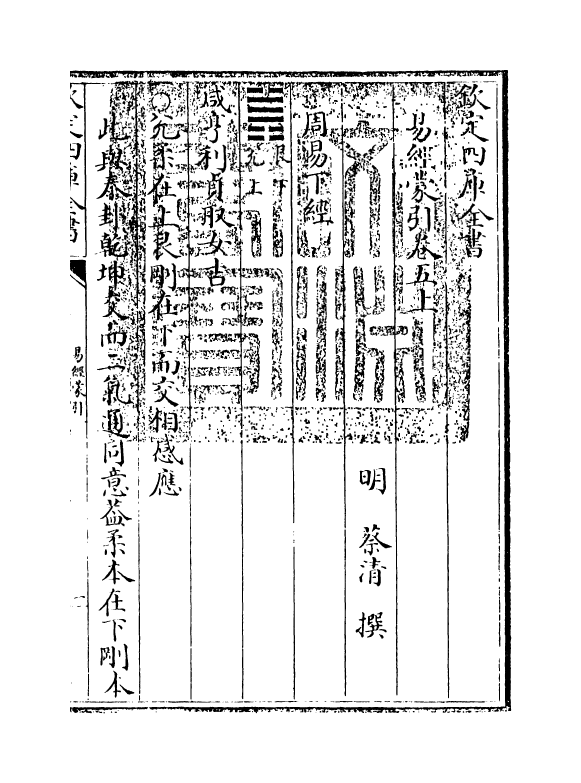 欽定四庫全書
易經蒙引卷五上
明 蔡清 撰
周易下經
艮下
兑上
咸亨利貞取女吉
○兊柔在上艮剛在下而交相感應
此與泰卦乾坤交而二氣通同意葢柔本在下剛本
欽定四庫全書
易經蒙引